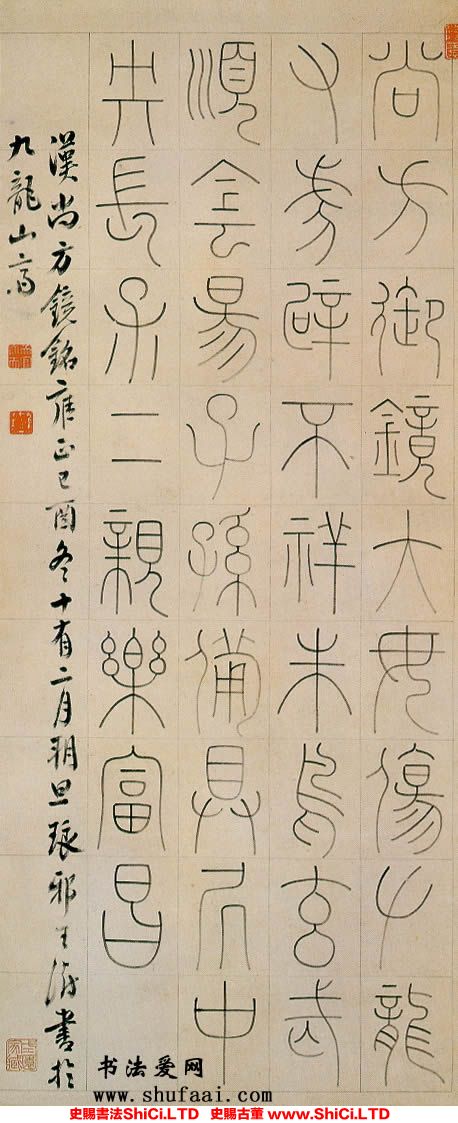 尚方御鏡大毋傷𠂇龍
又虎辟不祥朱鳥玄武
順侌昜子孫備具凥中
央長保二親樂富昌
漢尚方鏡銘雍正己酉冬十有二月朔旦琅邪王澍書於
九龍山齋
书法爱网
www.shufaai.com
史賜書法ShiCi.LTD 史賜古董 www.ShiCi.LTD